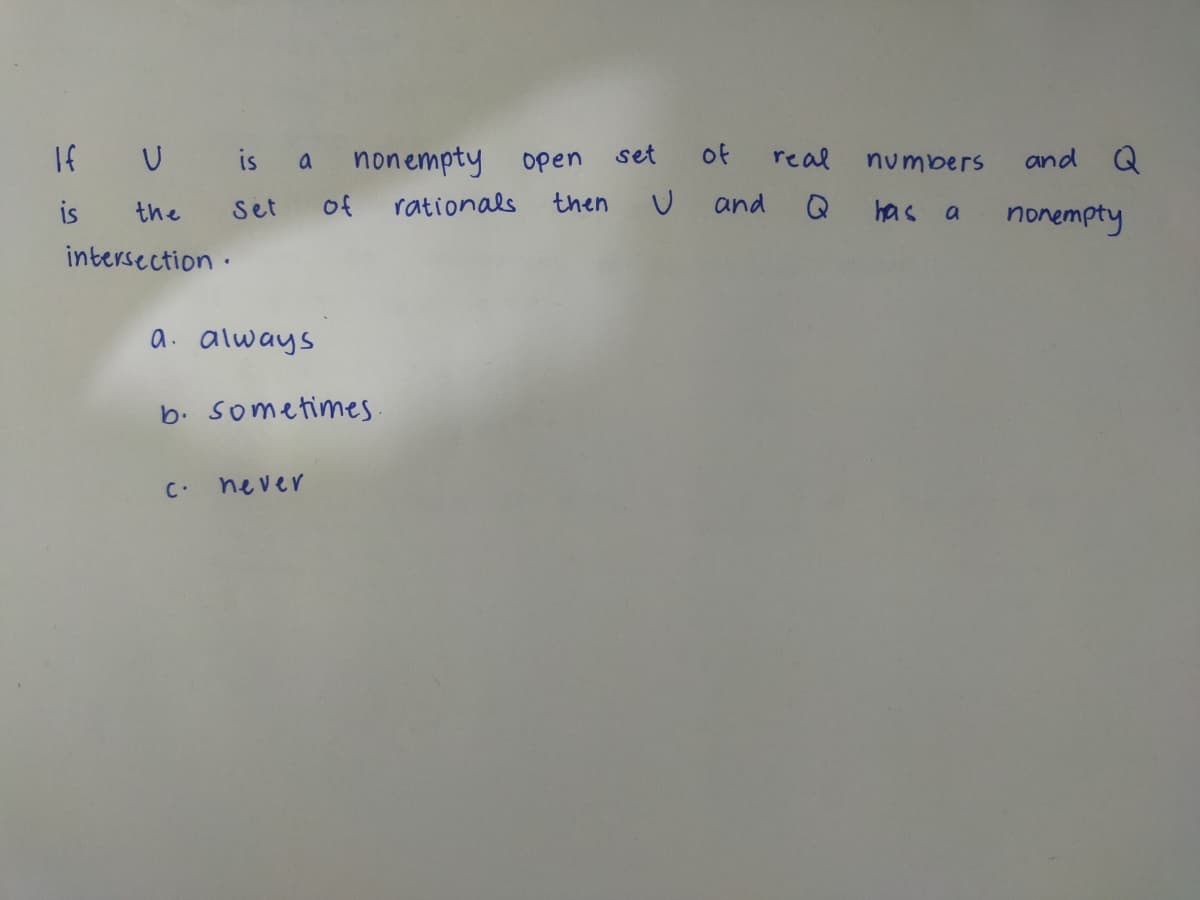 If U is a nonempty open set of real numbers and Q
is the set of rationals then U and Q has a nonempty
intersection.
a. always
b. sometimes.
c. never